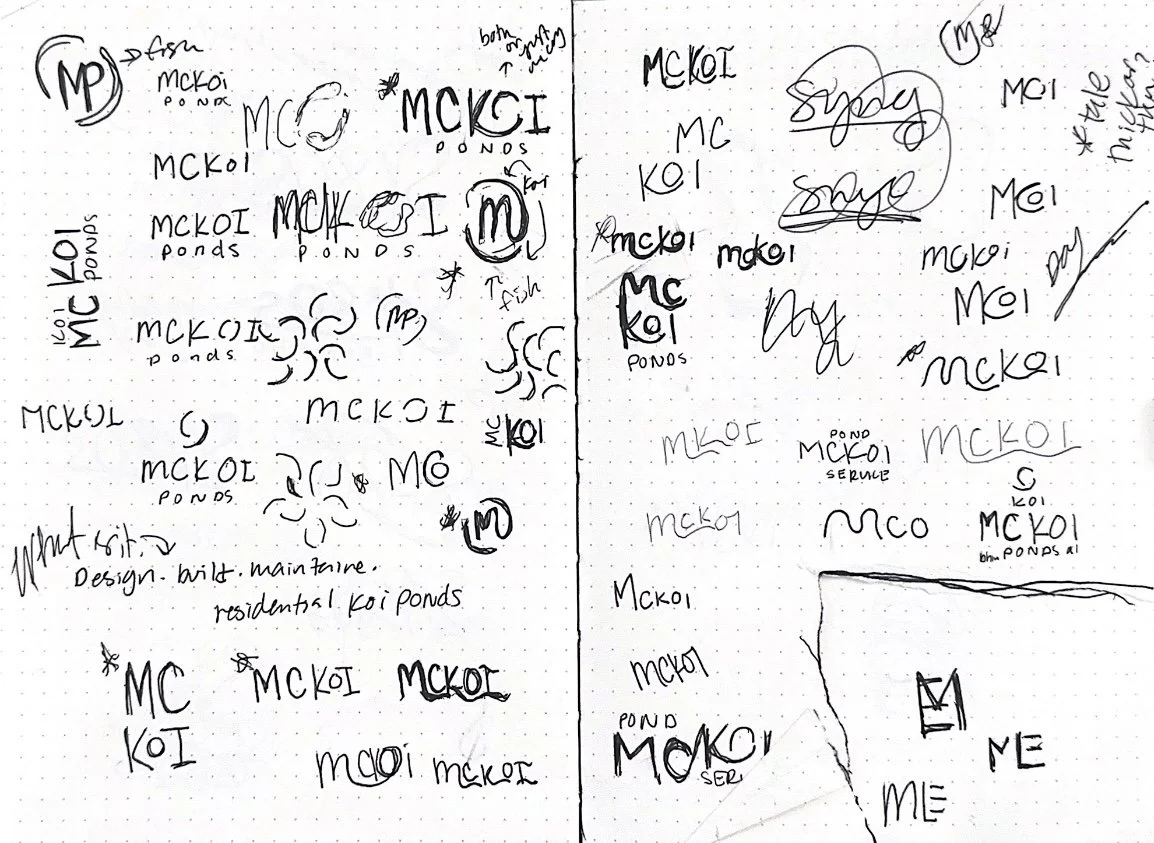 MP
fish
MCKOi
PONDS
MCO
both
MCKOI
PONDS
MCKOI
koi
MCKOI
ponds
MCKOI
PONDS
M
fish
KOI
MC KOI
PONDS
MCKOI
ponds
MP
MCKOI
MCKOI
MC
KOI
MCKOI
PONDS
MCO
M
What is it.
Design. built. maintaine.
residential koi ponds
MC
KOI
MCKOI
MCKOI
MCKOI
MCKOI
MCKOI
MCOI
tale
thicker?
MC
KOI
MCOI
mckoi
mckoi
mckoi
MC
KOI
PONDS
MCOI
MCKOI
MKOI
POND
MCKOI
SERVICE
MCKOI
mckoi
MCO
KOI
MCKOI
bhm PONDS al
MCKOI
MCKOI
POND
MCKOI
SER
ME
ME